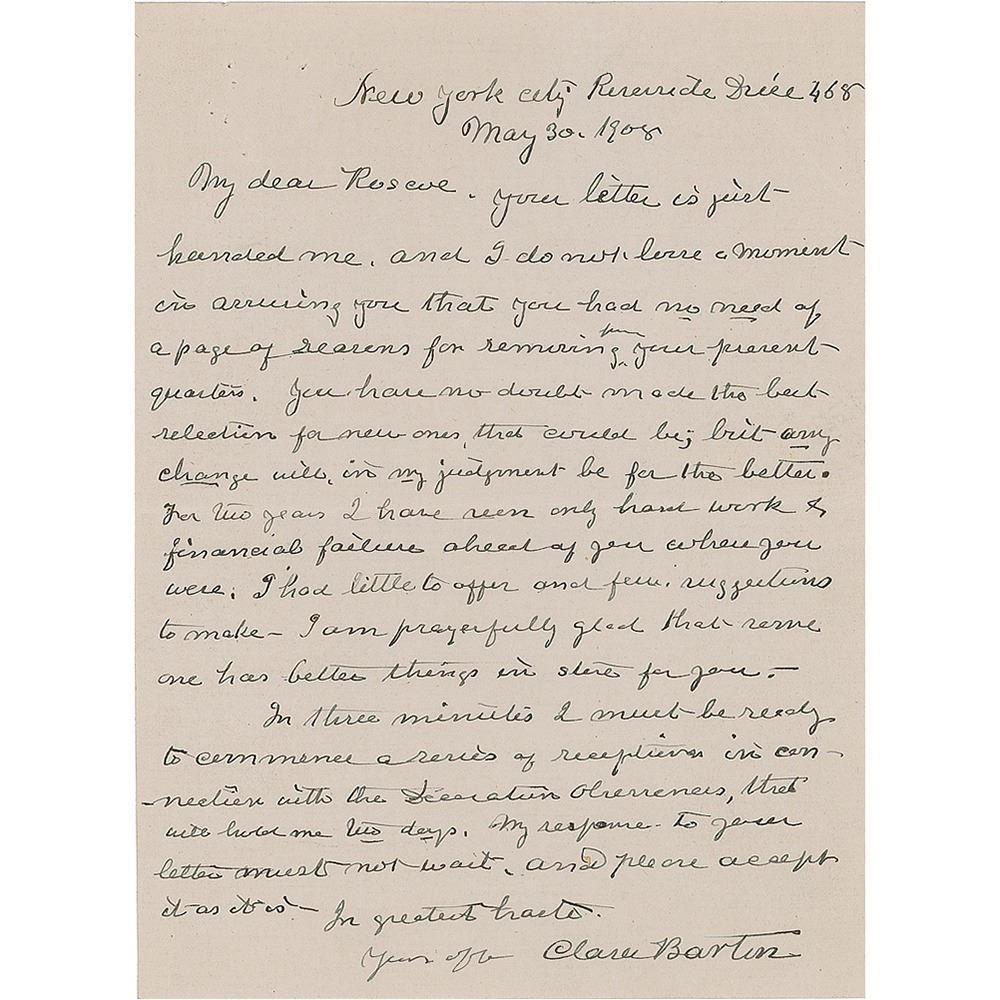 New York city Riverside Drive 468
May 30. 1908
My dear Roscoe.
your letter is just
handed me, and I do not lose a moment
in assuring you that you had no need of
a page of reasons for removing from your present
quarters. You have no doubt made the best
selection for new ones, that could be; but any
change will, in my judgment be for the better.
For two years I have seen only hard work &
financial failure ahead of you where you
were. I had little to offer and few suggestions
to make - I am prayerfully glad that some
one has better things in store for you. -
In three minutes I must be ready
to commence a series of receptions in con-
-nection with the Decoration Observences, that
will hold me two days. My response to your
letter must not wait, and please accept
it as it is - In greatest haste.
Yours aff Clara Barton